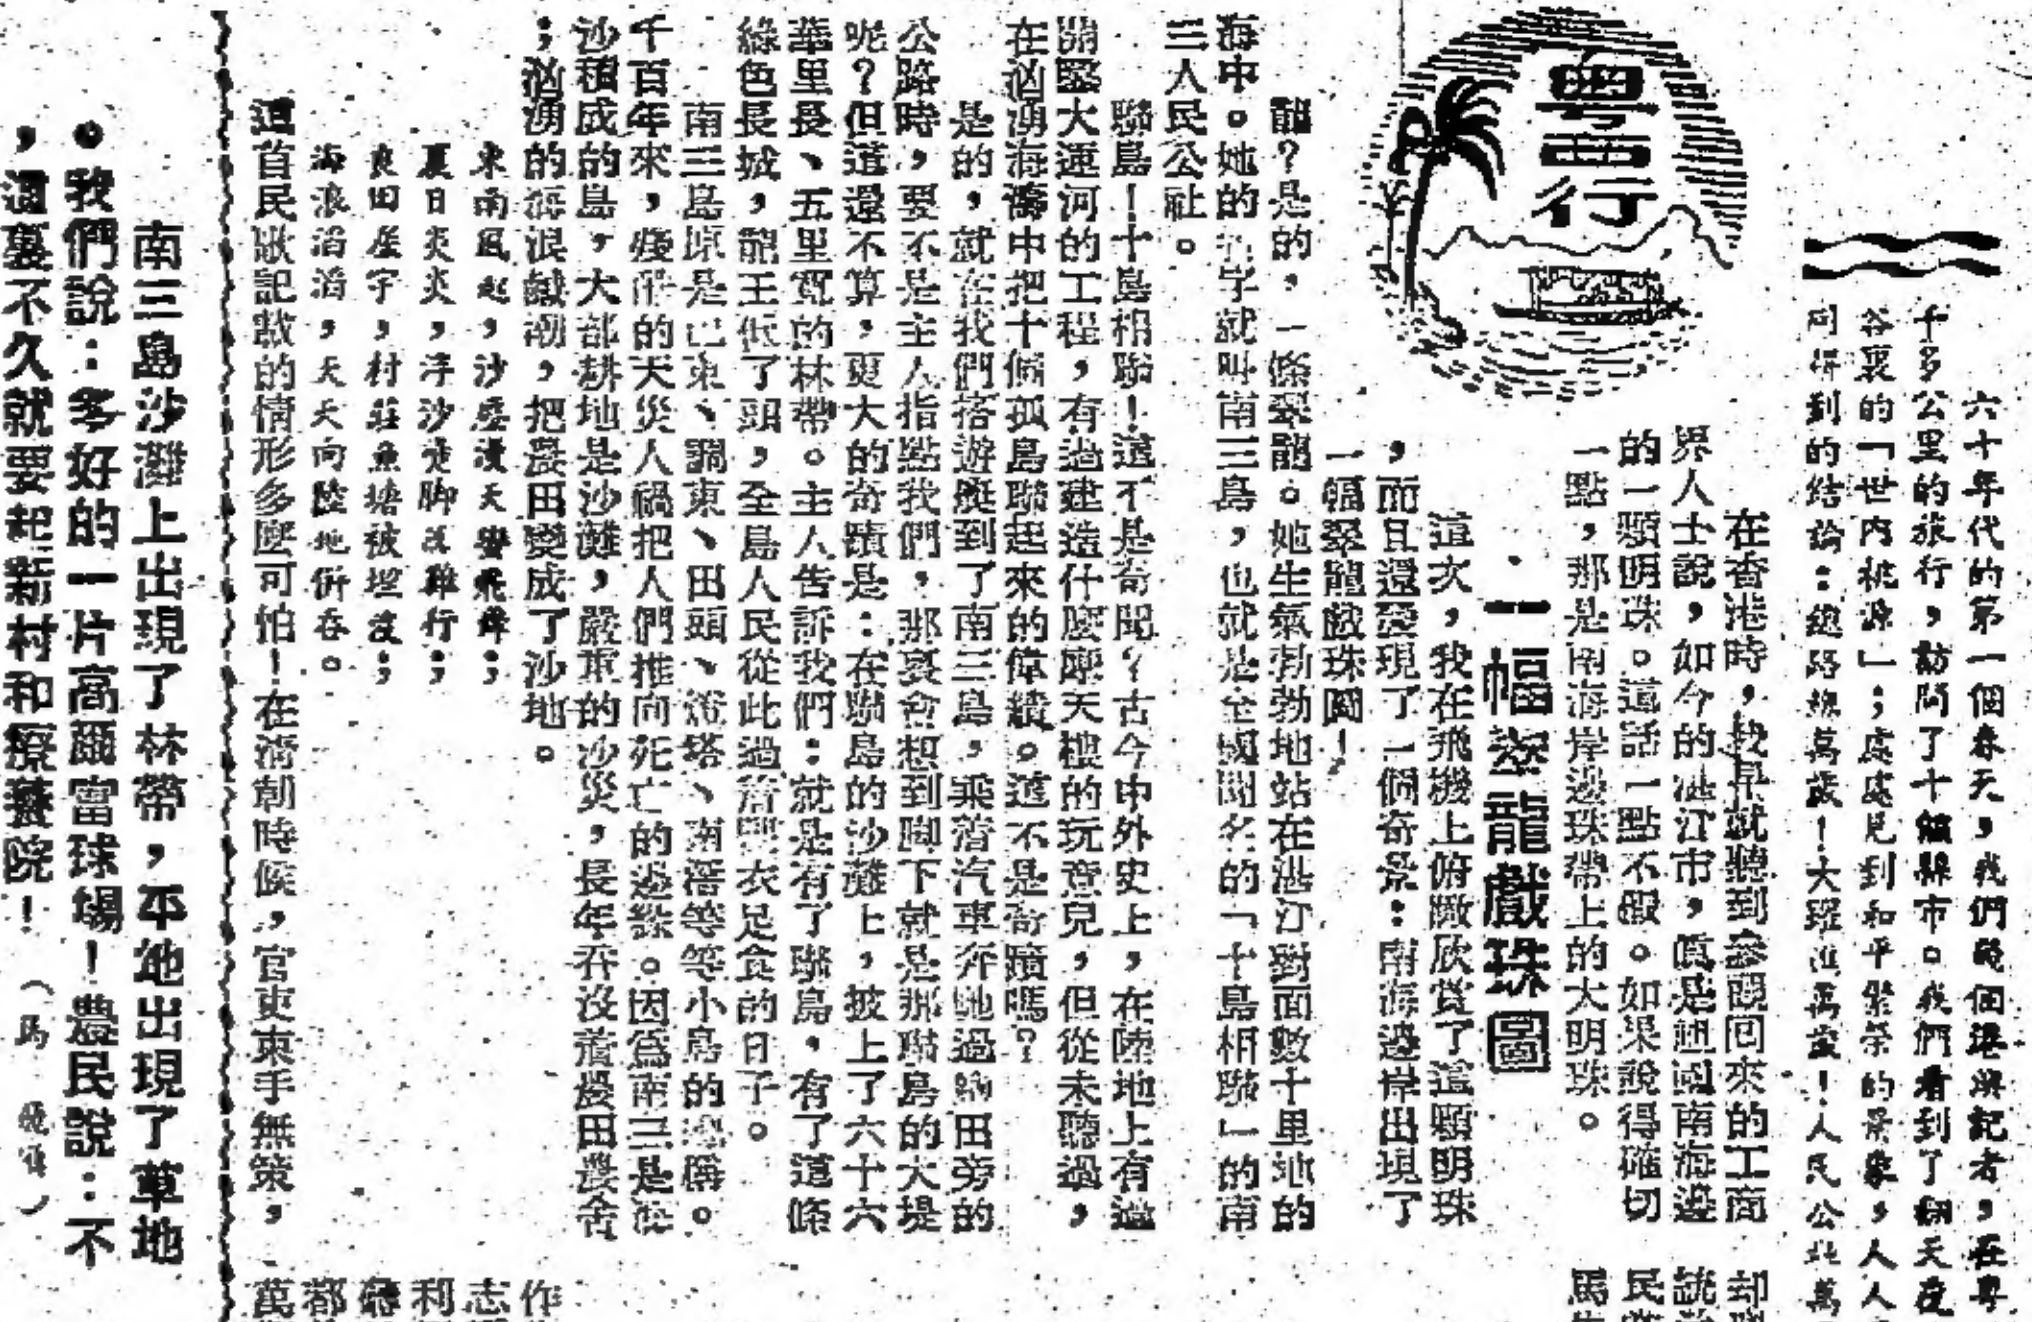 粤西行
六十年代的第一個春天，我們幾個港澳記者，在粤
千多公里的旅行，訪問了十餘縣市。我們看到了翻天夜
谷裏的「世內桃源」；處處見到和平繁榮的景象，人人
同得到的結論：總路線萬歲！大躍進萬歲！人民公社萬
在香港時，我早就聽到參觀回來的工商
界人士說，如今的湛江市，眞是祖國南海邊
的一顆明珠。這話一點不假。如果說得確切
一點，那是南海岸邊珠帶上的大明珠。
・一幅翠龍戲珠圖
這次，我在飛機上俯瞰欣賞了這顆明珠
，而且還發現了一個奇景：南海邊岸出現了
一幅翠龍戲珠圖！
龍？是的，一條翠龍。她生氣勃勃地站在湛江對面數十里地的
海中。她的名字就叫南三島，也就是全國聞名的「十島相聯」的南
三人民公社。
聯島！十島相聯！這不是奇聞？古今中外史上，在陸地上有過
開鑿大運河的工程，有過建造什麼摩天樓的玩意兒，但從未聽過，
在洶湧海濤中把十個孤島聯起來的偉績。這不是奇蹟嗎？
是的，就在我們搭遊艇到了南三島，乘着汽車奔馳過綠田旁的
公路時，要不是主人指點我們，那裏會想到脚下就是那聯島的大堤
呢？但這還不算，更大的奇蹟是：在聯島的沙灘上，披上了六十六
華里長、五里寬的林帶。主人告訴我們：就是有了聯島，有了這條
綠色長城，龍王低了頭，全島人民從此過着豐衣足食的日子。
南三島原是巴東、調東、田頭、燈塔、南滘等等小島的總稱。
千百年來，殘酷的天災人禍把人們推向死亡的邊緣。因爲南三是海
沙積成的島，大部耕地是沙灘，嚴重的沙災，長年吞沒着農田農舍
；洶湧的海浪鹹潮，把農田變成了沙地。
東南風起，沙塵漫天響飛鋒；
夏日炎炎，浮沙燙脚汲難行；
良田屋宇，村莊魚塘被埋沒；
海浪滔滔，天天向陸地併吞。
這首民歌記載的情形多麼可怕！在清朝時候，官吏束手無策，
南三島沙灘上出現了林帶，平地出現了草地
。我們說：多好的一片高爾富球場！農民說：不
，這裏不久就要起新村和療養院！
作
志
利
聽
都
萬
却
說
民
馬